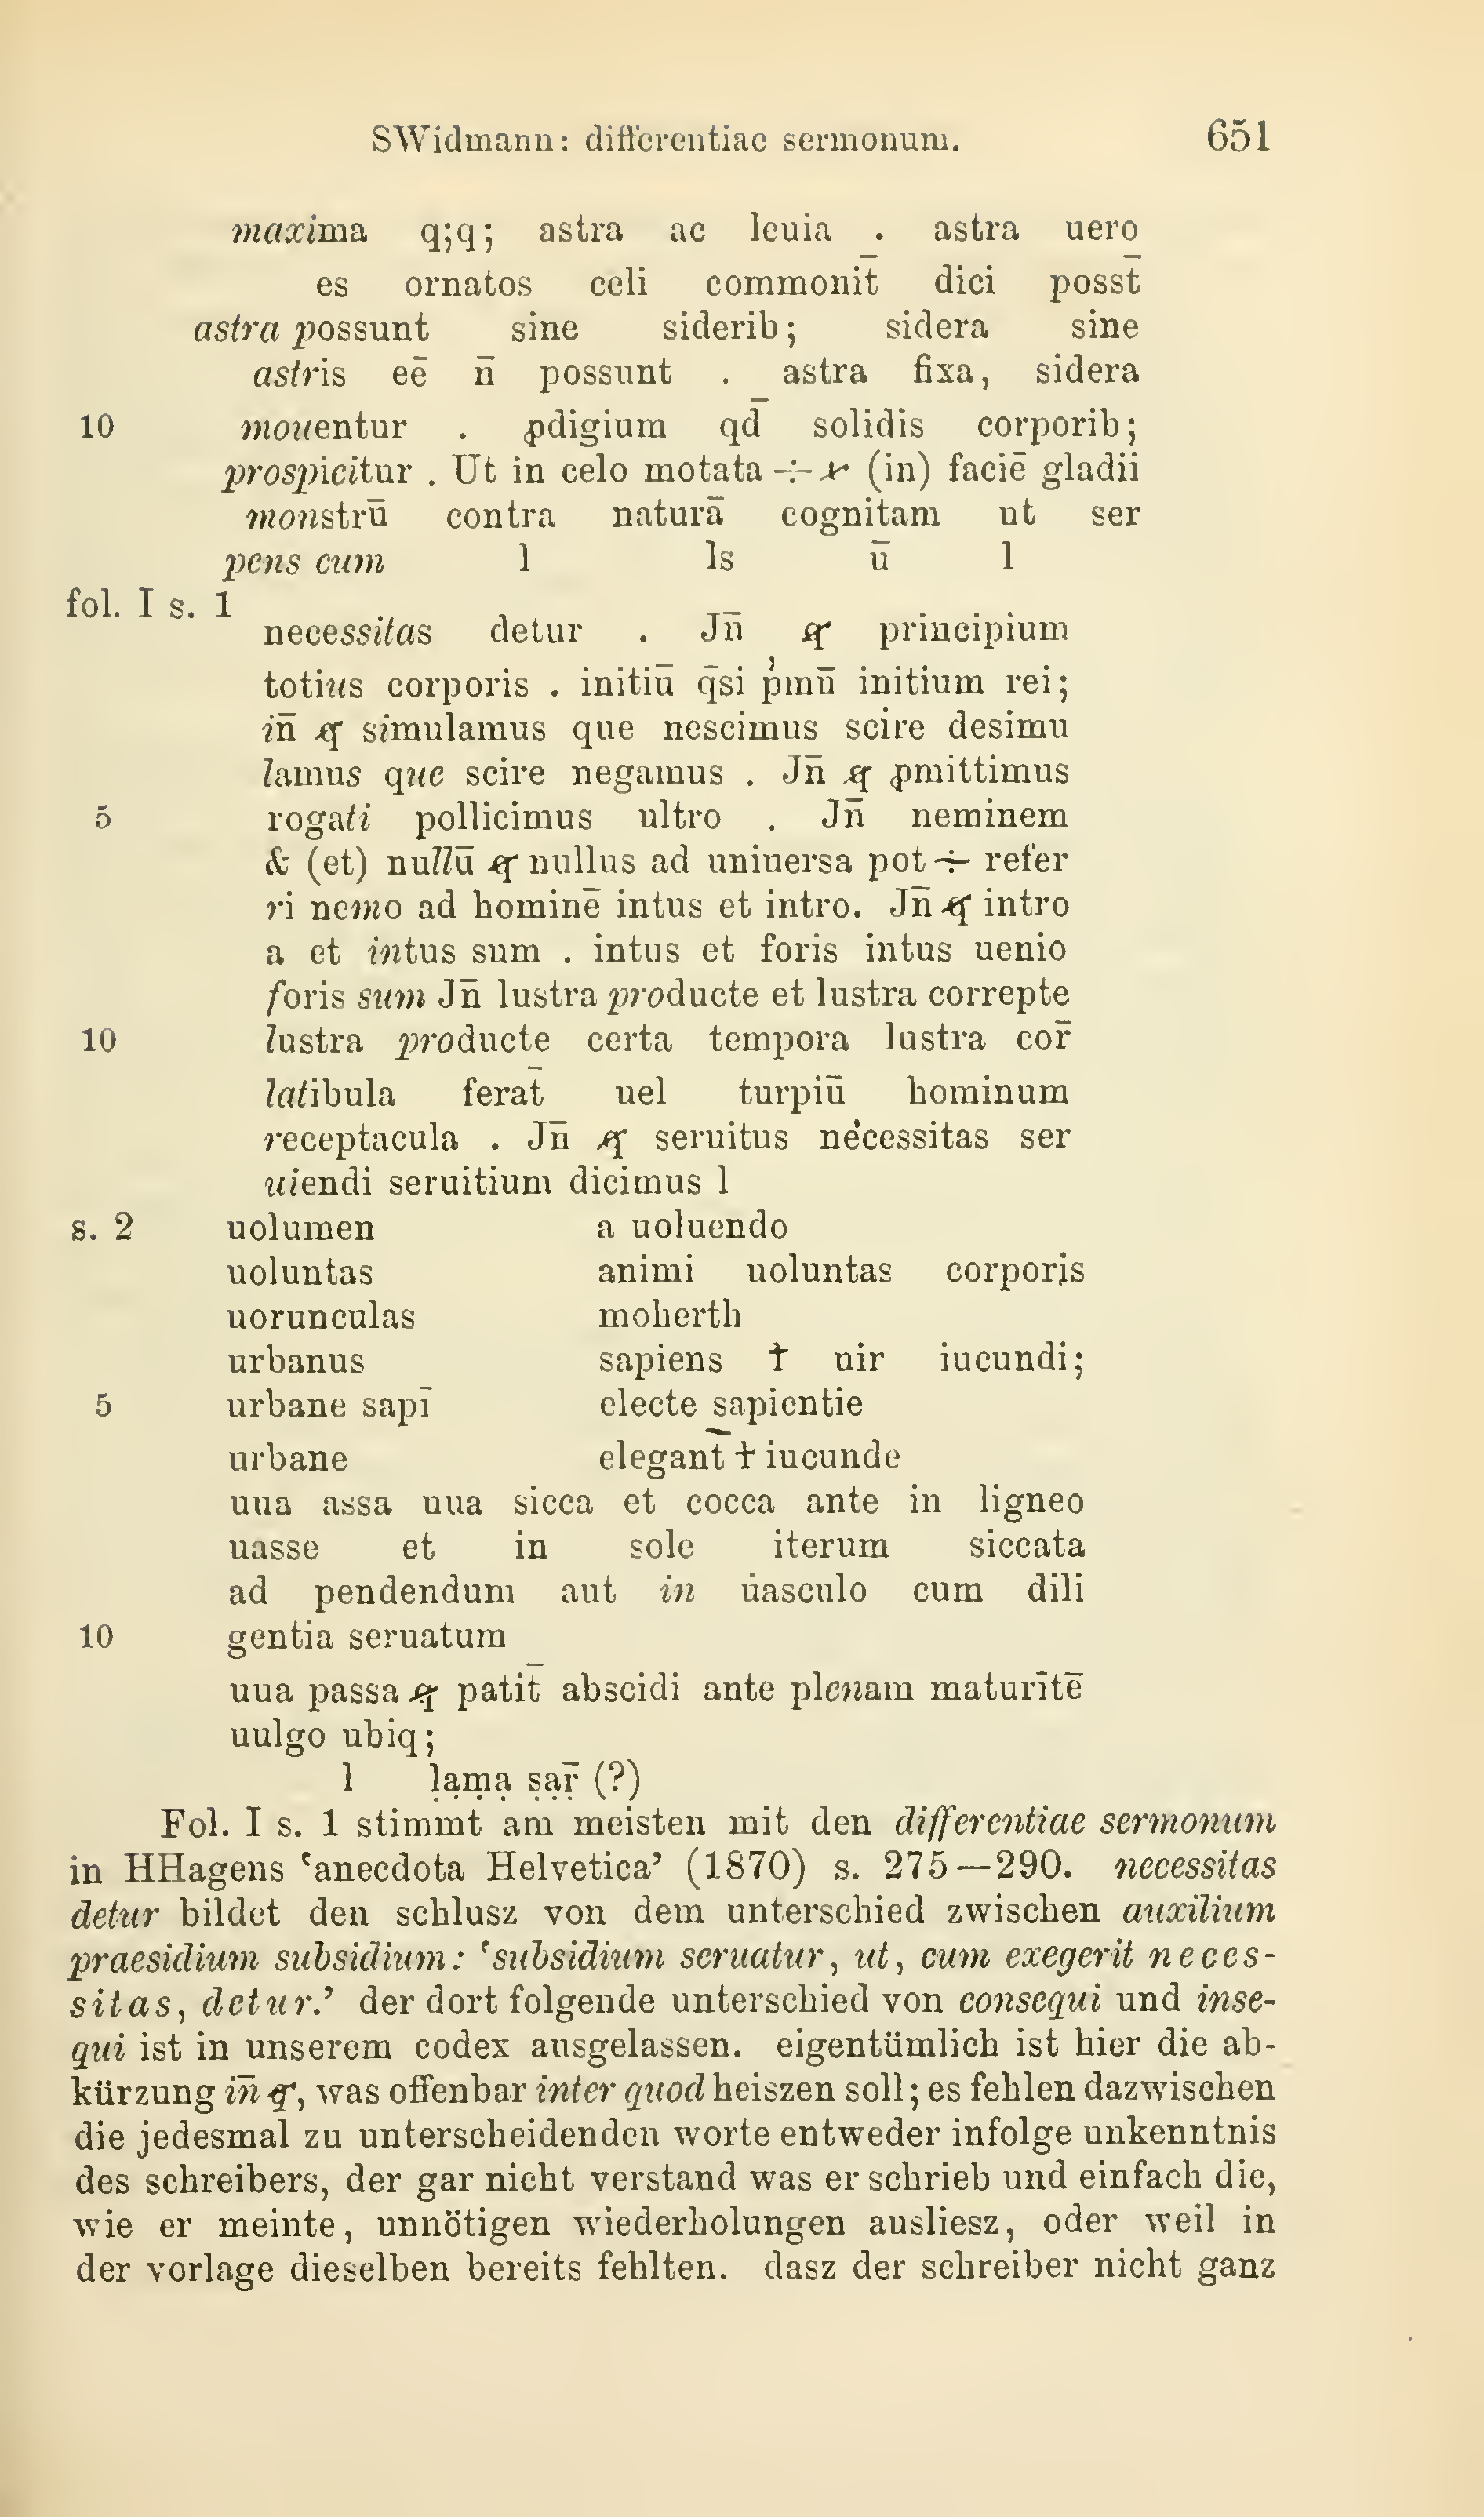 SWidmann: differentiae sermonum. 651
maxima q;q; astra ac leuia . astra uero
es ornatos celi commonit̄ dici posst̄
astra possunt sine siderib; sidera sine
astris eē n̄ possunt . astra fixa, sidera
10 mouentur . ꝓdigium qd̄ solidis corporib;
prospicitur . Ut in celo motata ÷ (in) faciē gladii
monstrū contra naturā cognitam ut ser
pens cum l ls ū l
fol. I s. 1
necessitas detur . Jn̄ ꝙ principium
totius corporis . initiū q̄si p̓mū initium rei;
in̄ ꝙ simulamus que nescimus scire desimu
lamus que scire negamus . Jn̄ ꝙ ꝓmittimus
5 rogati pollicimus ultro . Jn̄ neminem
& (et) nullū ꝙ nullus ad uniuersa pot ÷ refer
ri nemo ad hominē intus et intro. Jn̄ ꝙ intro
a et intus sum . intus et foris intus uenio
foris sum Jn̄ lustra producte et lustra correpte
10 lustra producte certa tempora lustra cor̄
latibula ferat̄ uel turpiū hominum
receptacula . Jn̄ ꝙ seruitus necessitas ser
uiendi seruitium dicimus l
s. 2 uolumen a uoluendo
uoluntas animi uoluntas corporis
uorunculas moherth
urbanus sapiens ƚ uir iucundi;
5 urbane sapī electe sapientie
urbane elegant̄ ƚ iucunde
uua assa uua sicca et cocca ante in ligneo
uasse et in sole iterum siccata
ad pendendum aut in uasculo cum dili
10 gentia seruatum
uua passa ꝙ patit̄ abscidi ante plenam maturītē
uulgo ubiq;
l ḷạṃạ ṣạṝ (?)
Fol. I s. 1 stimmt am meisten mit den differentiae sermonum
in HHagens ‘anecdota Helvetica’ (1870) s. 275—290. necessitas
detur bildet den schlusz von dem unterschied zwischen auxilium
praesidium subsidium: ‘subsidium seruatur, ut, cum exegerit neces-
sitas, detur.’ der dort folgende unterschied von consequi und inse-
qui ist in unserem codex ausgelassen. eigentümlich ist hier die ab-
kürzung in̄ ꝙ, was offenbar inter quod heiszen soll; es fehlen dazwischen
die jedesmal zu unterscheidenden worte entweder infolge unkenntnis
des schreibers, der gar nicht verstand was er schrieb und einfach die,
wie er meinte, unnötigen wiederholungen ausliesz, oder weil in
der vorlage dieselben bereits fehlten. dasz der schreiber nicht ganz